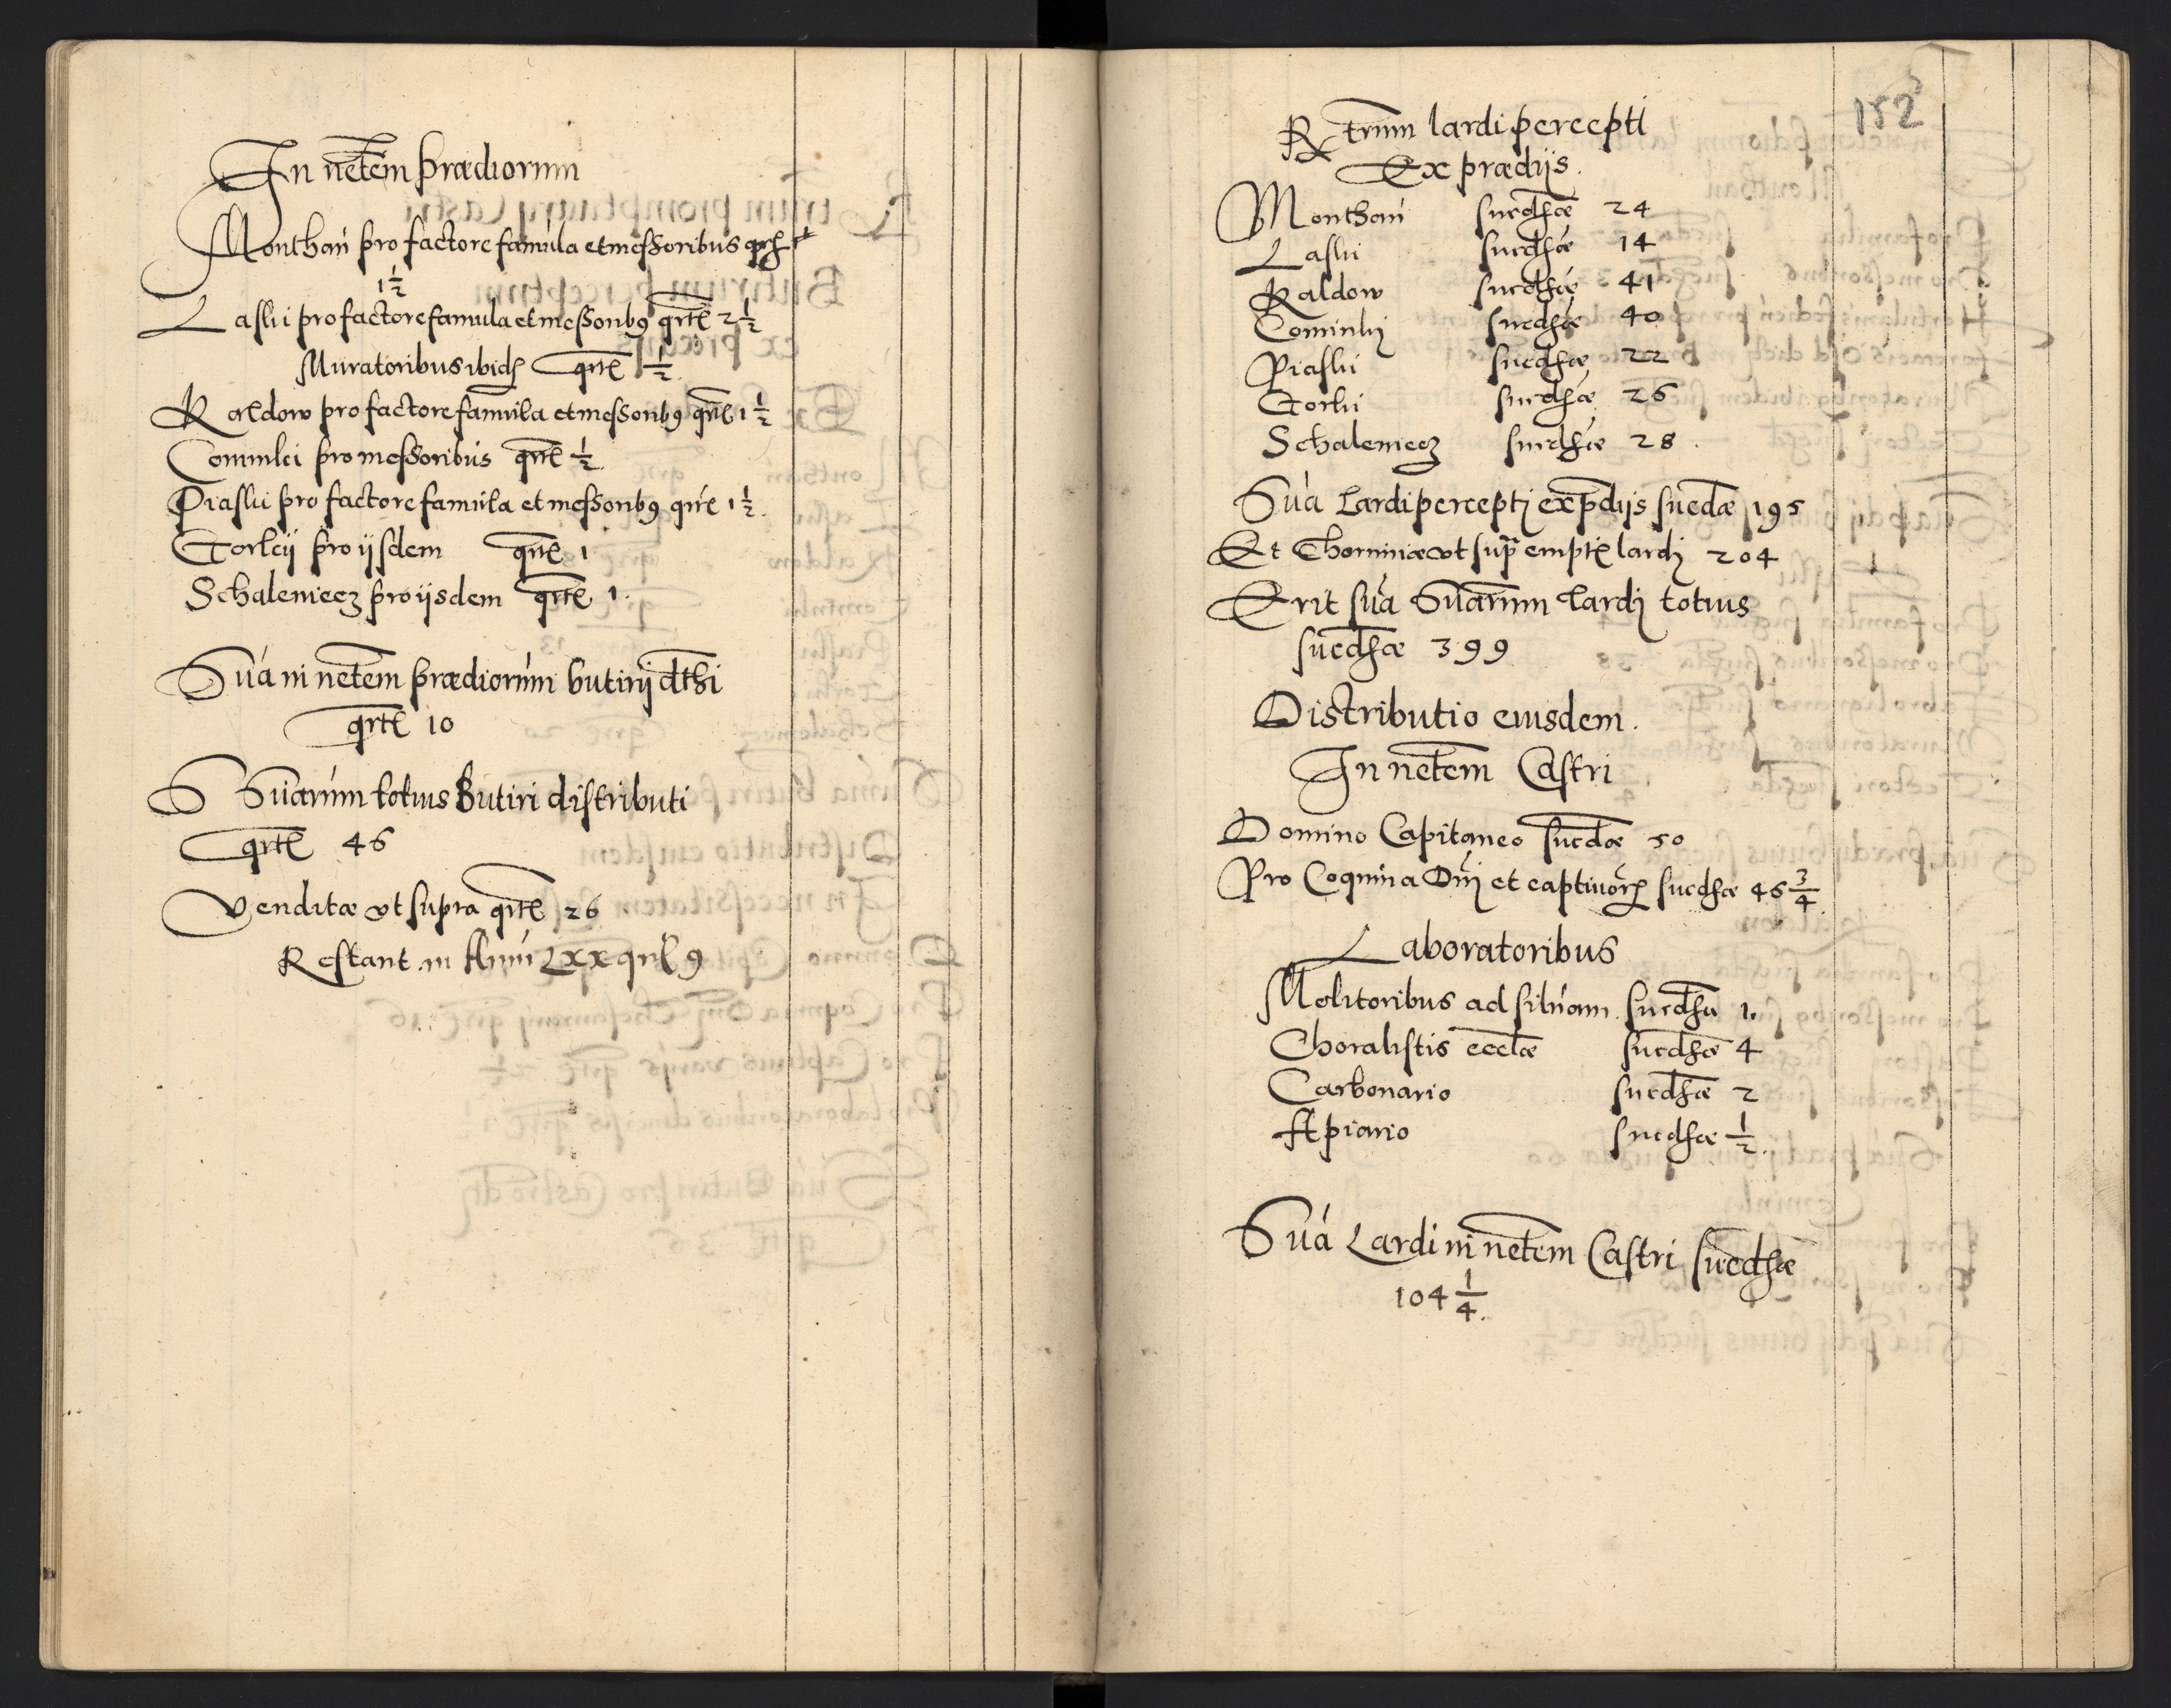 In nētem prædiorum
Monthaú pro factore famúla et messoribus qrtł
1 1/2
Laslii pro factore famula et messoribꝰ qrtł 2 1/2
Muratoribus ibidꝫ qrtł 1/2
Raldow pro factore famúla et messoribꝰ qrtł 1 1/2
Cominlei pro messoribus qrtł 1/2.
Piaslii pro factore famúla et messoribꝰ qrtł 1 1/2.
Gorleij pro ijsdem qrtł 1
Schalemecz pro ijsdem qrtł 1.
Sua in nētem prædiorúm butirij dthi
qrtł 10
S Suarúm totius Butiri distributi
qrtł 46
Venditæ vt supra qrtł 26
Restant in Annú Lxx qrtł 9
152
Rtrum lardi percepti
Ex prædijs.
Monthaú suedhæ 24
Laslii suedhæ 14
Raldow suedhæ 41
Cominlij suedhæ 40
Piaslii suedhæ 22
Gorlii suedhæ 26
Schalemecz suedhæ 28.
Súa Lardi percepti ex pdijs suedæ 195
Et Thorniæ vt supr emptł lardj 204
Erit súa Suarum Lardj totius
suedhæ 399
Distributio eiusdem.
In nētem Castri
Domino Capitaneo suedæ 50
Pro Coquina Dnj et captiuorꝝ suedhæ 46 3/4.
Laboratoribus
Molitoribus ad siluam suedha 1.
Choralistis eccłæ suedhæ 4
Carbonario suedhæ 2
Apiario suedhæ 1/2.
Súa Lardi in nētem Castri suedhæ
104 1/4.